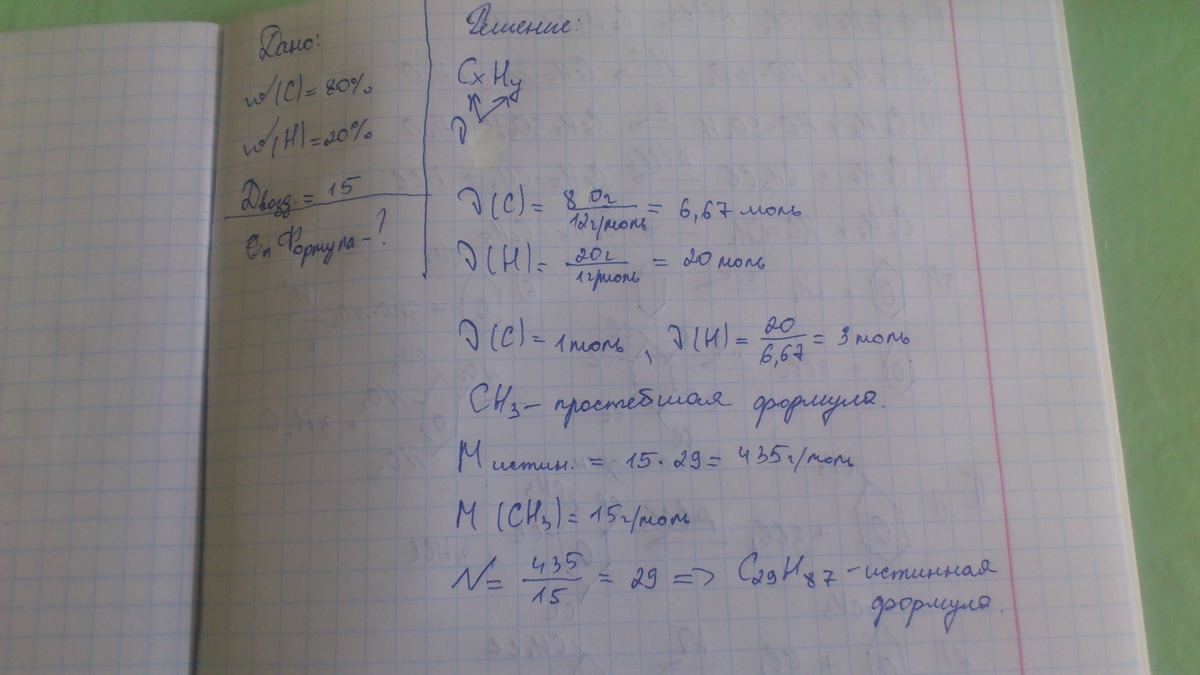 Дано:
w(C) = 80%
w(H) = 20%
Dвозд. = 15
Формула - ?
Решение:
CxHy
ν
ν(C) = 80г/12г/моль = 6,67 моль
ν(H) = 20г/1г/моль = 20 моль
ν(C) = 1 моль, ν(H) = 20/6,67 = 3 моль
CH3 - простейшая формула.
M истин. = 15 · 29 = 435 г/моль
M (CH3) = 15 г/моль
N = 435/15 = 29 => C29H87 - истинная
формула.